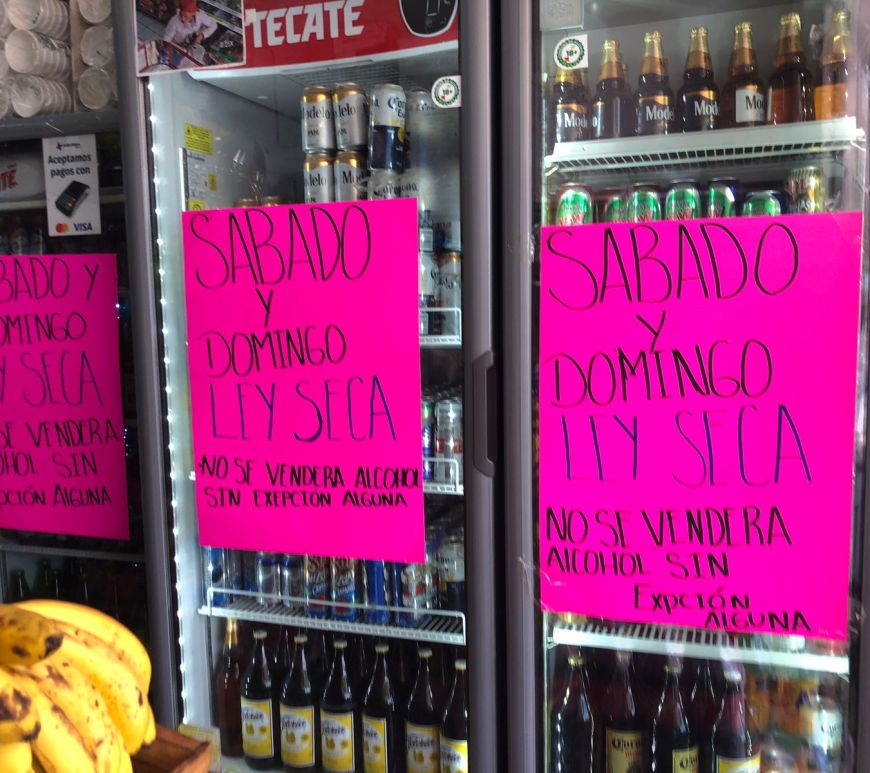 TECATE
Aceptamos
pagos con
VISA
BADO Y
OMINGO
Y SECA
SE VENDERA
OHOL SIN
PCIÓN AlGUNA
SABADO
Y
DOMINGO
LEY SECA
-NO SE VENDERA ALCOHOL
SIN EXEPCIÓN ALGUNA
SABADO
Y
DOMINGO
LEY SECA
NO SE VENDERA
ALCOHOL SIN
ExpCTÓN
ALGUNA
18+
18+
Modelo
Modelo
Modelo
Corona
Mode
Mode
Mode
Mo